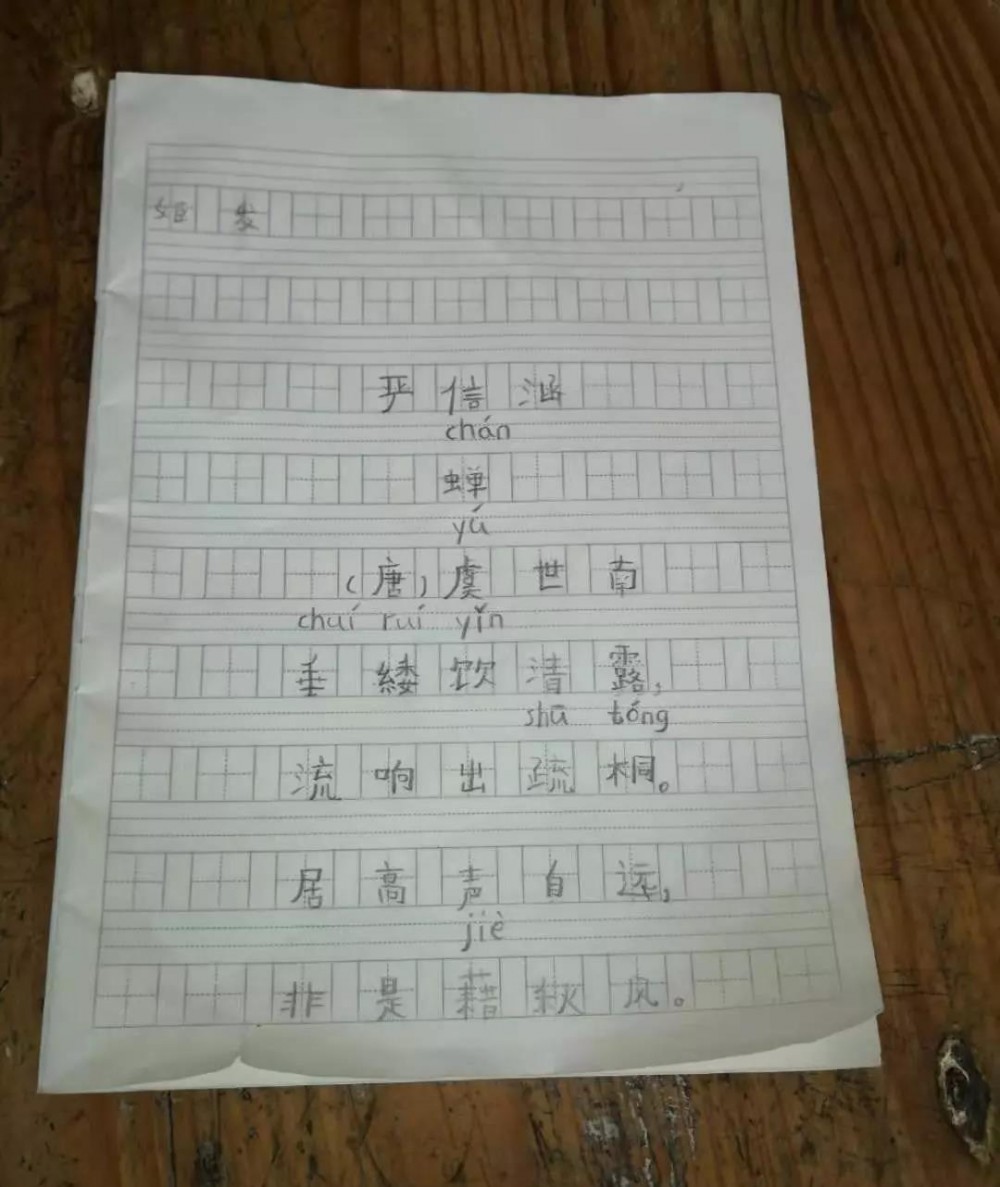 发
严信涵
chán
蝉
yú
（唐）虞世南
chuí ruí yǐn
垂緌饮清露，
shū tóng
流响出疏桐。
居高声自远，
jiè
非是藉秋风。